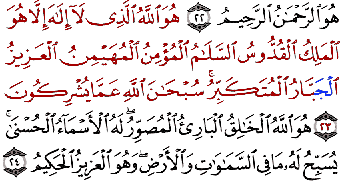 هُوَ ٱلرَّحْمَٰنُ ٱلرَّحِيمُ ٢٢ هُوَ ٱللَّهُ ٱلَّذِى لَآ إِلَٰهَ إِلَّا هُوَ
ٱلْمَلِكُ ٱلْقُدُّوسُ ٱلسَّلَٰمُ ٱلْمُؤْمِنُ ٱلْمُهَيْمِنُ ٱلْعَزِيزُ
ٱلْجَبَّارُ ٱلْمُتَكَبِّرُ ۚ سُبْحَٰنَ ٱللَّهِ عَمَّا يُشْرِكُونَ
٢٣ هُوَ ٱللَّهُ ٱلْخَٰلِقُ ٱلْبَارِئُ ٱلْمُصَوِّرُ ۖ لَهُ ٱلْأَسْمَآءُ ٱلْحُسْنَىٰ ۚ
يُسَبِّحُ لَهُۥ مَا فِى ٱلسَّمَٰوَٰتِ وَٱلْأَرْضِ ۖ وَهُوَ ٱلْعَزِيزُ ٱلْحَكِيمُ ٢٤